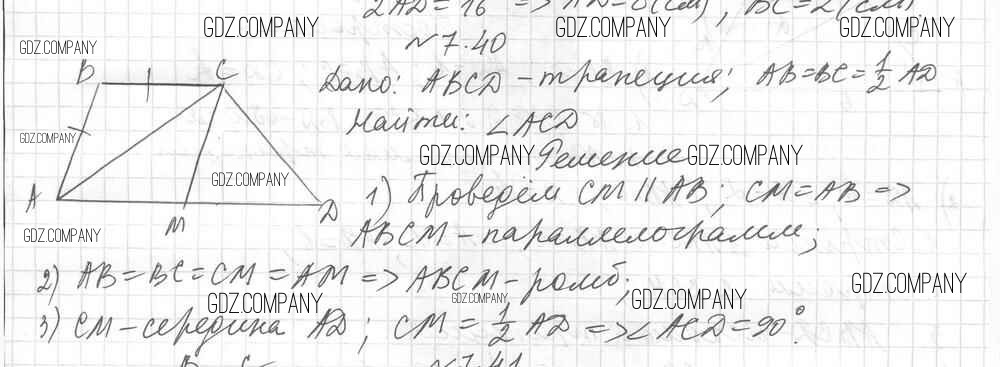 2AD = 16 => AD=8(см), BC=2(см)
GDZ.COMPANY GDZ.COMPANY GDZ.COMPANY
№7.40
GDZ.COMPANY
B C
Дано: ABCD - трапеция; AB=BC=1/2 AD
Найти: ∠ACD
GDZ.COMPANY
GDZ.COMPANY Решение GDZ.COMPANY
GDZ.COMPANY
A M D
1) Проведём CM || AB; CM=AB =>
GDZ.COMPANY
ABCM - параллелограмм;
2) AB=BC=CM=AM => ABCM - ромб;
GDZ.COMPANY GDZ.COMPANY GDZ.COMPANY GDZ.COMPANY
3) CM - середина AD; CM = 1/2 AD => ∠ACD=90°.
B C
№7.41